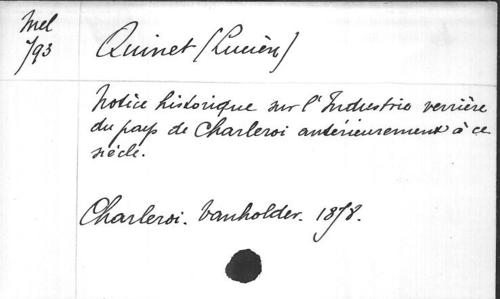 Mel
793
Quinet (Lucien)
Notice historique sur l'Industrie verrière
du pays de Charleroi antérieurement à ce
siècle.
Charleroi. Vanholder. 1878.